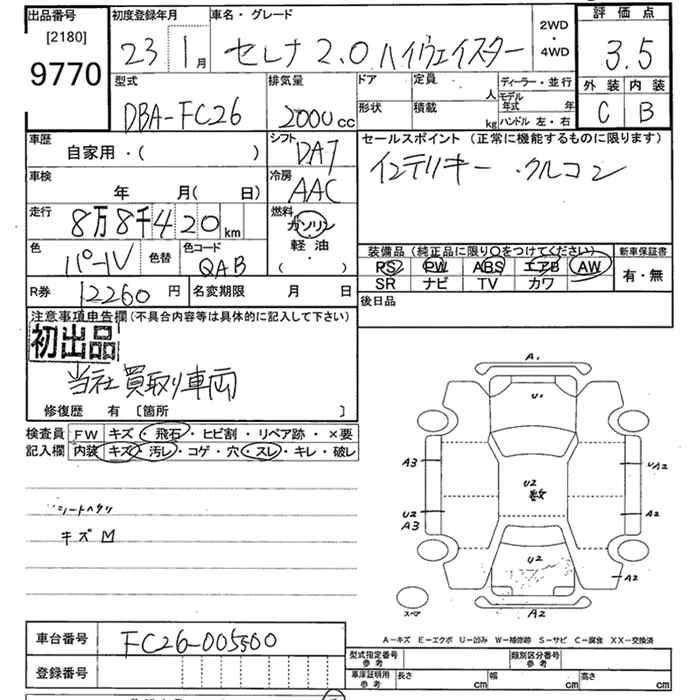 出品番号 初度登録年月 車名・グレード 2WD・4WD 評価点
[2180]
9770 23 1月 セレナ 2.0 ハイウェイスター 3.5
外装 内装
C B
型式 排気量 ドア 定員 人 ディーラー・並行
DBA-FC26 2000cc 形状 積載 kg モデル年式 年
ハンドル 左・右
車歴 シフト セールスポイント(正常に機能するものに限ります)
自家用・( ) DA7 インテリキー・クルコン
車検 冷房
年 月(日) AAC
走行 燃料
8万8千420km ガソリン
軽油
( ・ )
色 色替 色コード 装備品(純正品に限り〇をつけてください) 新車保証書
パールV QAB PS PW ABS エアB AW 有・無
SR ナビ TV カワ
R券 12260円 名変期限 月 日 後日品
注意事項申告欄(不具合内容等は具体的に記入して下さい)
初出品
当社買取り車両
修復歴 有 [箇所 ]
検査員 FW キズ・飛石・ヒビ割・リペア跡・×要
記入欄 内装 キズ・汚レ・コゲ・穴・スレ・キレ・破レ
シートヘタリ
キズ M
A1
U1
A3 UA2
U2
数
U2 A2
A3
U2
A2
スペア A2
A-キズ E-エクボ U-凹み W-補修跡 S-サビ C-腐食 XX-交換済
車台番号 FC26-005500
型式指定番号 参考 類別区分番号 参考
登録番号 車庫証明用 参考 長さ cm 幅 cm 高さ cm